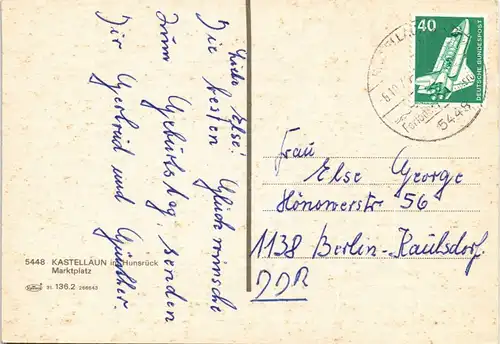 Liebe Else!
Die besten Glückwünsche
zum Geburtstag, senden
Dir Gertrud und Günther.
5448 KASTELLAUN im Hunsrück
Marktplatz
31. 136.2 266643
40
DEUTSCHE BUNDESPOST
5448
Frau
Else George
Hönowerstr 56
1138 Berlin-Kaulsdorf
DDR